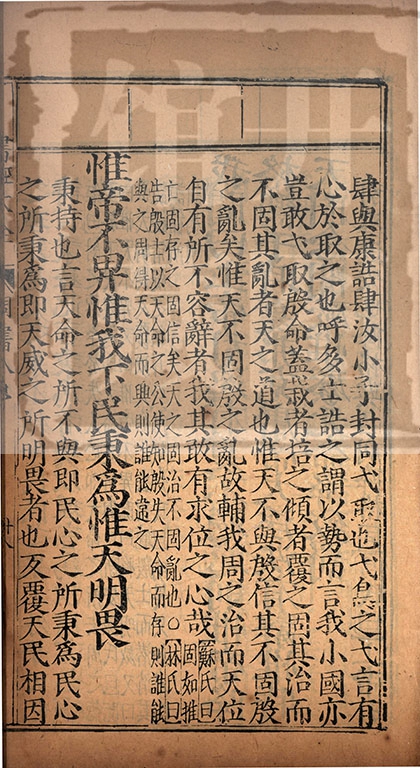 肆與康誥肆汝小子封同弋取也弋鳥之弋言有
心於取之也呼多士誥之謂以勢而言我小國亦
豈敢弋取殷命蓋栽者培之傾者覆之固其治而
不固其亂者天之道也惟天不與殷信其不固殷
之亂矣惟天不固殷之亂故輔我周之治而天位
自有所不容辭者我其敢有求位之心哉蘇氏曰
固如推
亡固存之固信矣天之固治不固亂也○林氏曰
告殷士以天命之公使知殷失天命而存則誰能
與之周得天命而興則誰能違之
惟帝不畀惟我下民秉為惟天明畏
秉持也言天命之所不與即民心之所秉為民心
之所秉為即天威之所明畏者也反覆天民相因